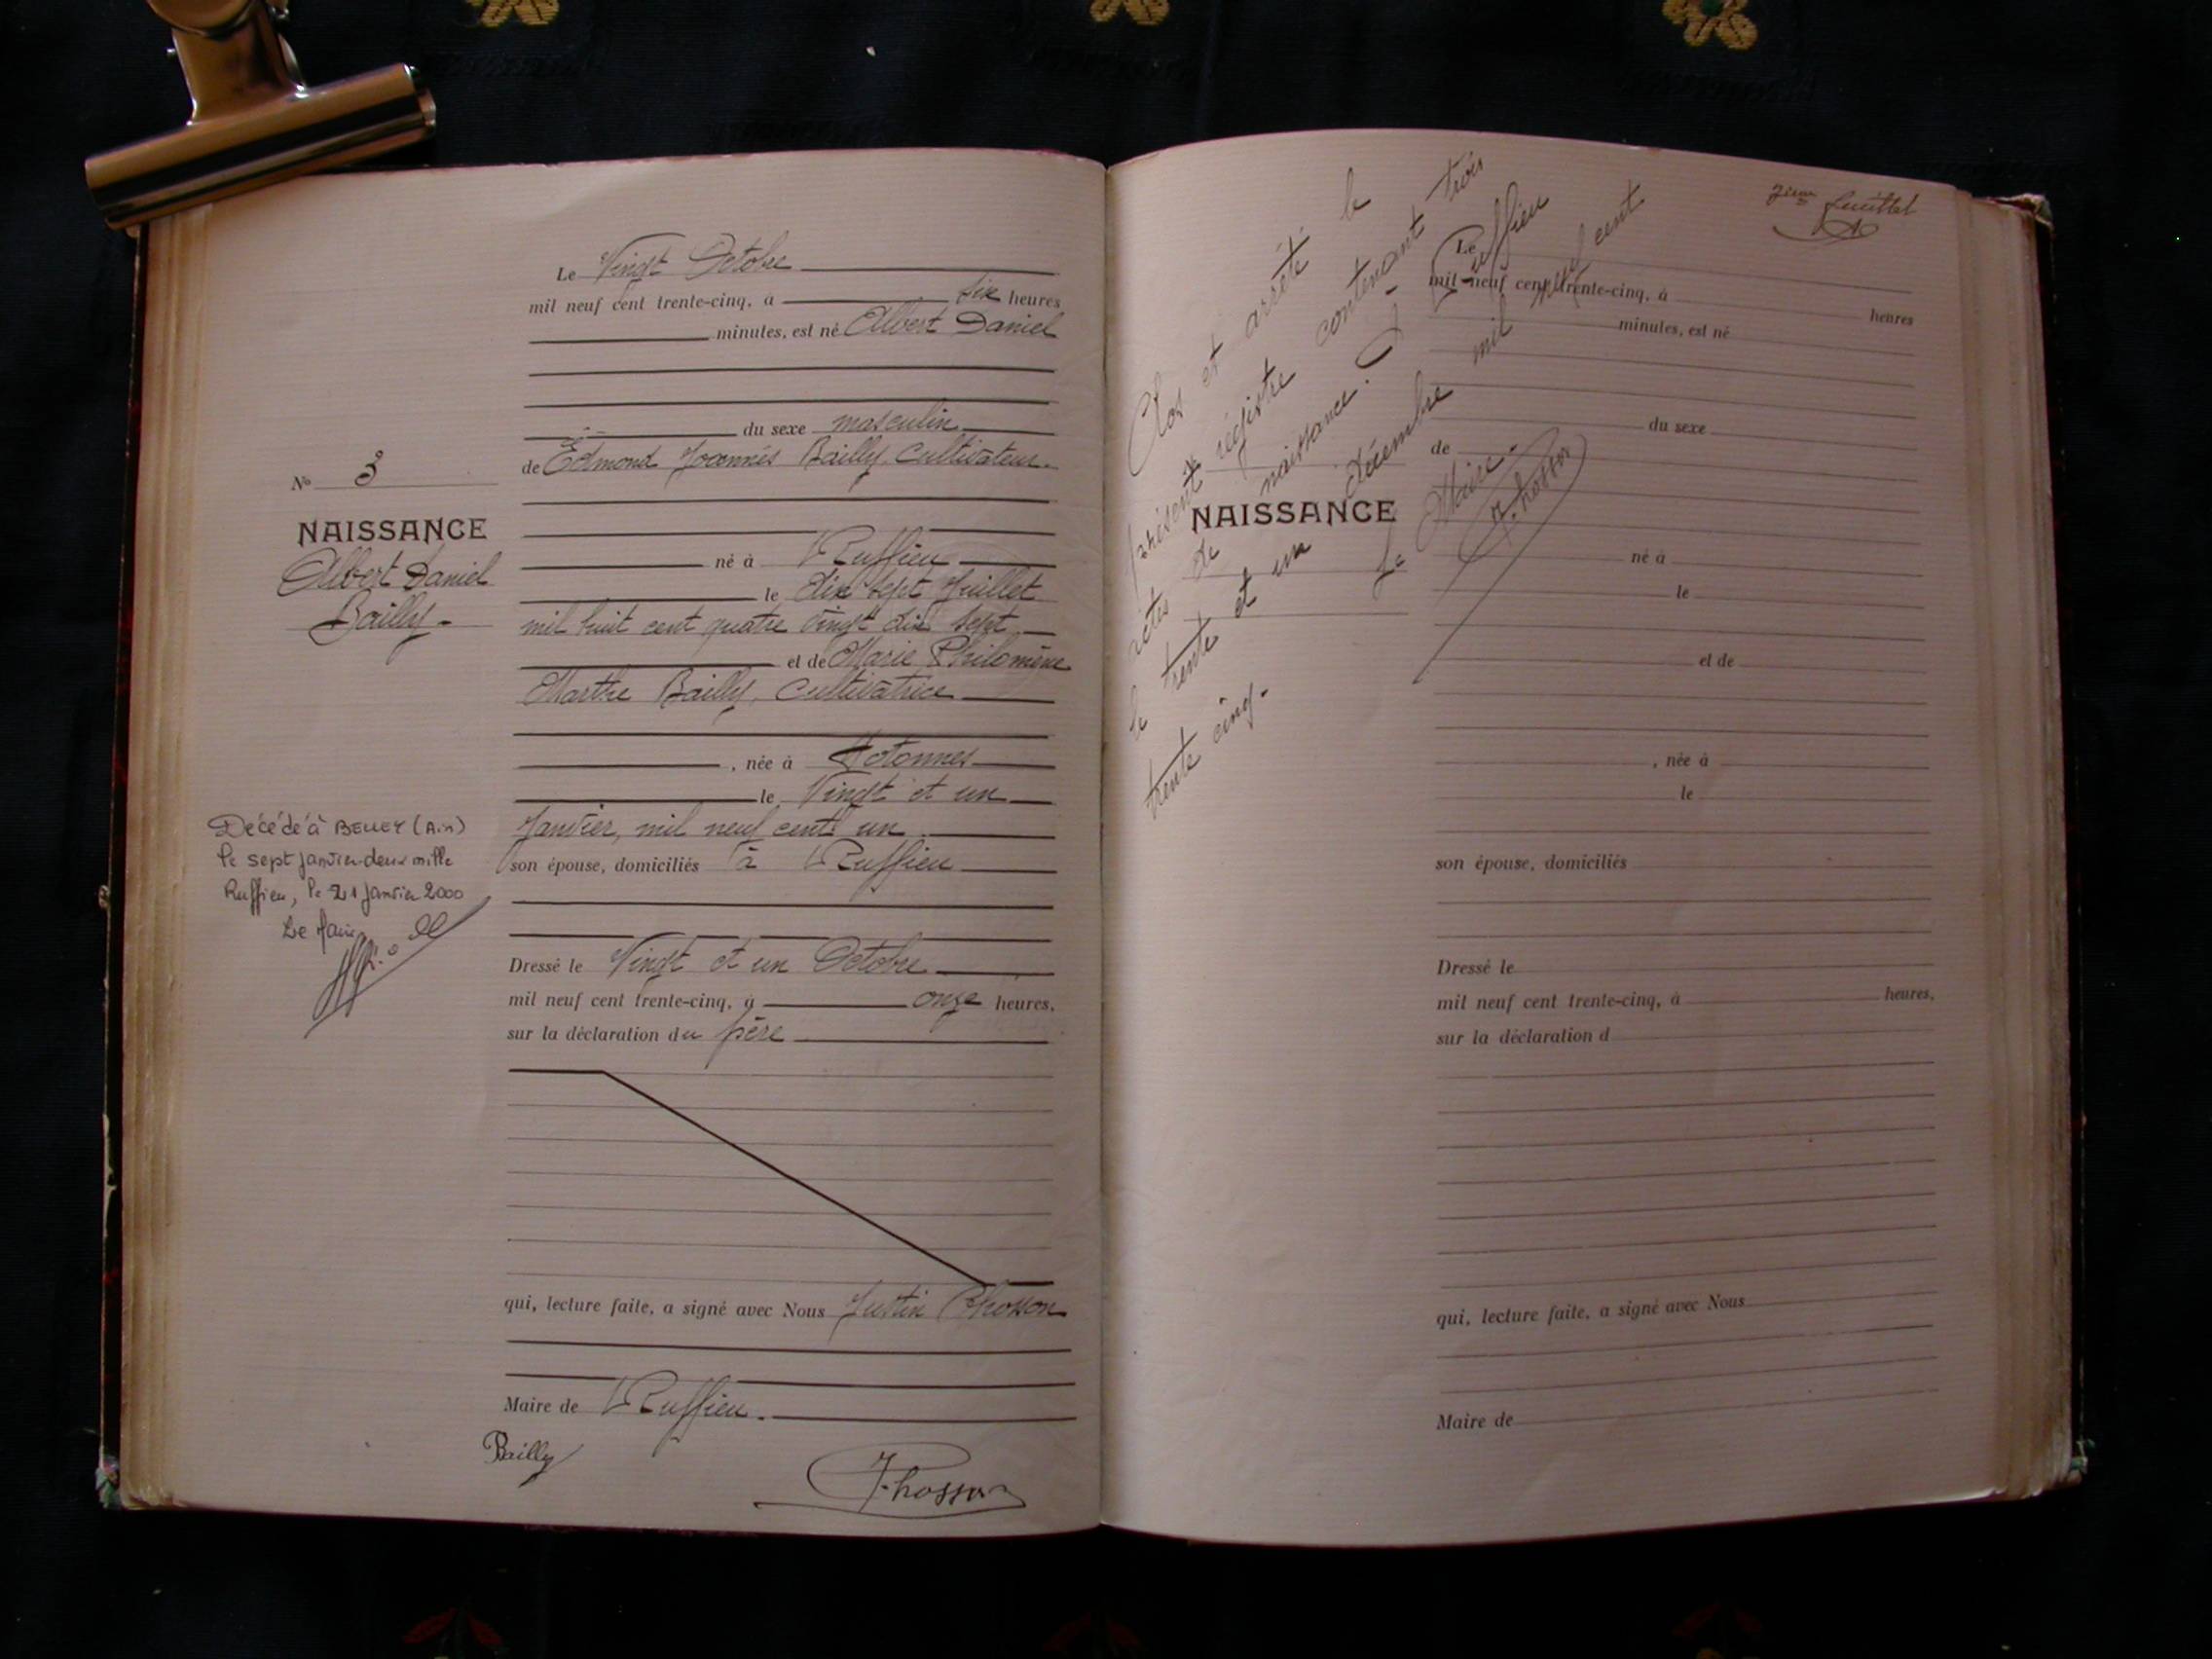 Le Vingt Octobre
mil neuf cent trente-cinq, à six heures
minutes, est né Albert Daniel
du sexe masculin
de Edmond Joannès Bailly, Cultivateur.
N° 3
NAISSANCE
Albert Daniel
Bailly.
né à Ruffieu
le dix sept Juillet
mil huit cent quatre vingt dix sept
et de Marie Philomène
Marthe Bailly, Cultivatrice
, née à Hotonnes
le Vingt et un
Janvier, mil neuf cent un
son épouse, domiciliés à Ruffieu
Décédé à BELLEY (Ain)
le sept janvier deux mille
Ruffieu, le 21 janvier 2000
Le Maire
Dressé le Vingt et un Octobre
mil neuf cent trente-cinq, à onze heures,
sur la déclaration du père
qui, lecture faite, a signé avec Nous Justin Chosson
Maire de Ruffieu.
Bailly
J. Chosson
feuillet
Clos et arrêté le
présent régistre contenant trois
actes de naissance. à Ruffieu
le trente et un décembre mil neuf cent
trente cinq.
Le Maire.
J. Chosson
Le
mil neuf cent trente-cinq, à heures
minutes, est né
du sexe
de
NAISSANCE
né à
le
et de
, née à
le
son épouse, domiciliés
Dressé le
mil neuf cent trente-cinq, à heures,
sur la déclaration d
qui, lecture faite, a signé avec Nous
Maire de